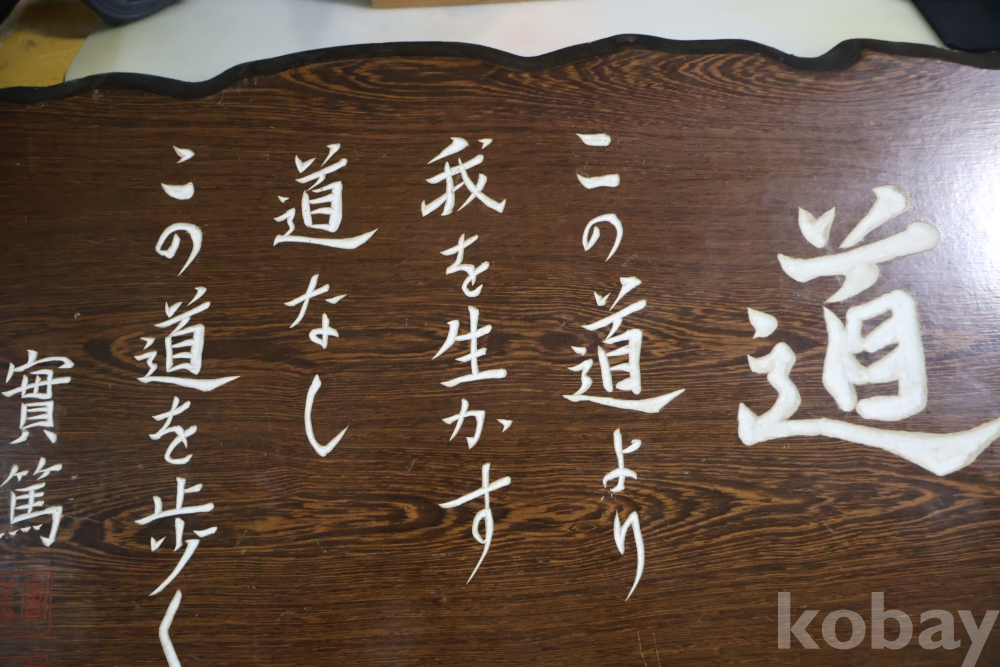 道
この道より
我を生かす
道なし
この道を歩く
實篤
kobay